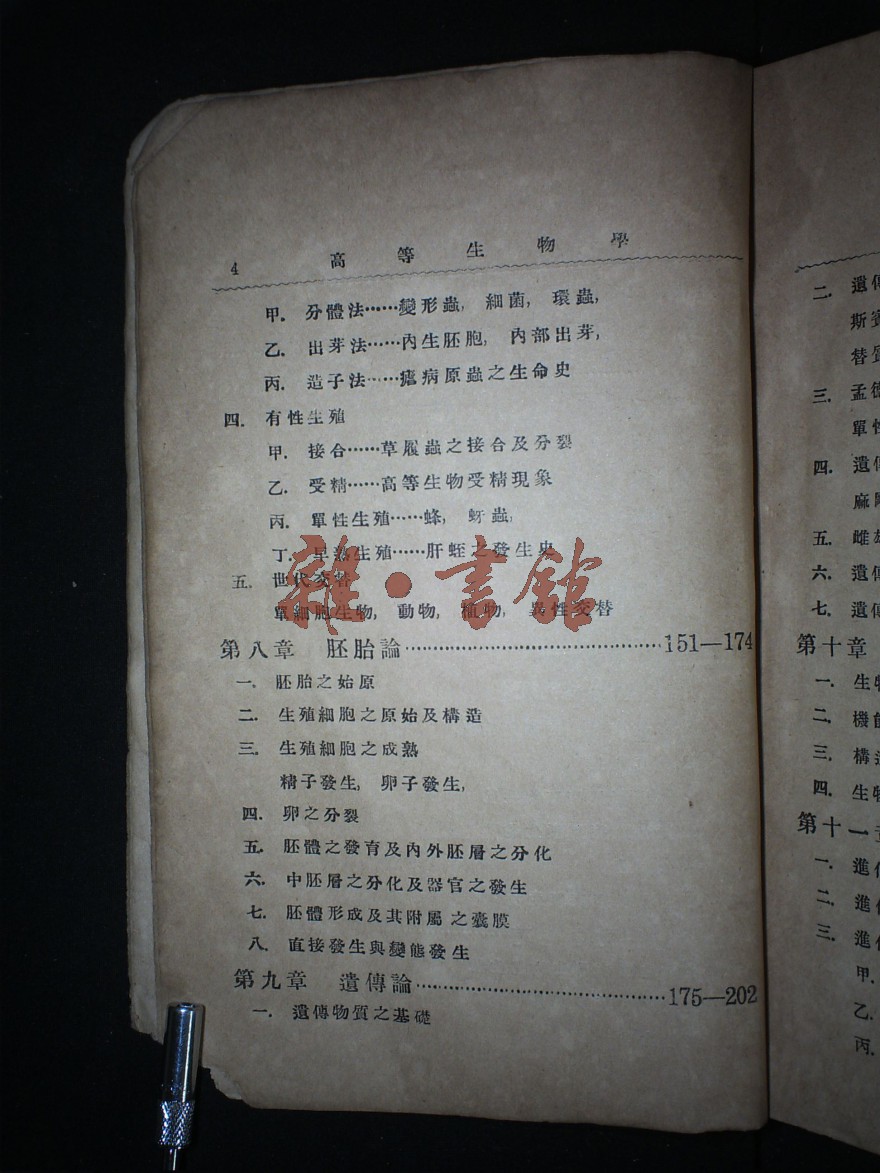 4 高等生物學
甲. 分體法……變形蟲, 細菌, 環蟲,
乙. 出芽法……內生胚胞, 內部出芽,
丙. 造子法……瘧病原蟲之生命史
四. 有性生殖
甲. 接合……草履蟲之接合及分裂
乙. 受精……高等生物受精現象
丙. 單性生殖……蜂, 蚜蟲,
丁. 早熟生殖……肝蛭之發生史
五. 世代交替
單細胞生物, 動物, 植物, 異性交替
雜·書館
第八章 胚胎論……151—174
一. 胚胎之始原
二. 生殖細胞之原始及構造
三. 生殖細胞之成熟
精子發生, 卵子發生,
四. 卵之分裂
五. 胚體之發育及內外胚層之分化
六. 中胚層之分化及器官之發生
七. 胚體形成及其附屬之囊膜
八. 直接發生與變態發生
第九章 遺傳論……175—202
一. 遺傳物質之基礎
二. 遺
斯
替
三. 孟
單
四. 遺
麻
五. 雌
六. 遺
七. 遺
第十章
一. 生
二. 機
三. 構
四. 生
第十一
一. 進
二. 進
三. 進
甲.
乙.
丙.